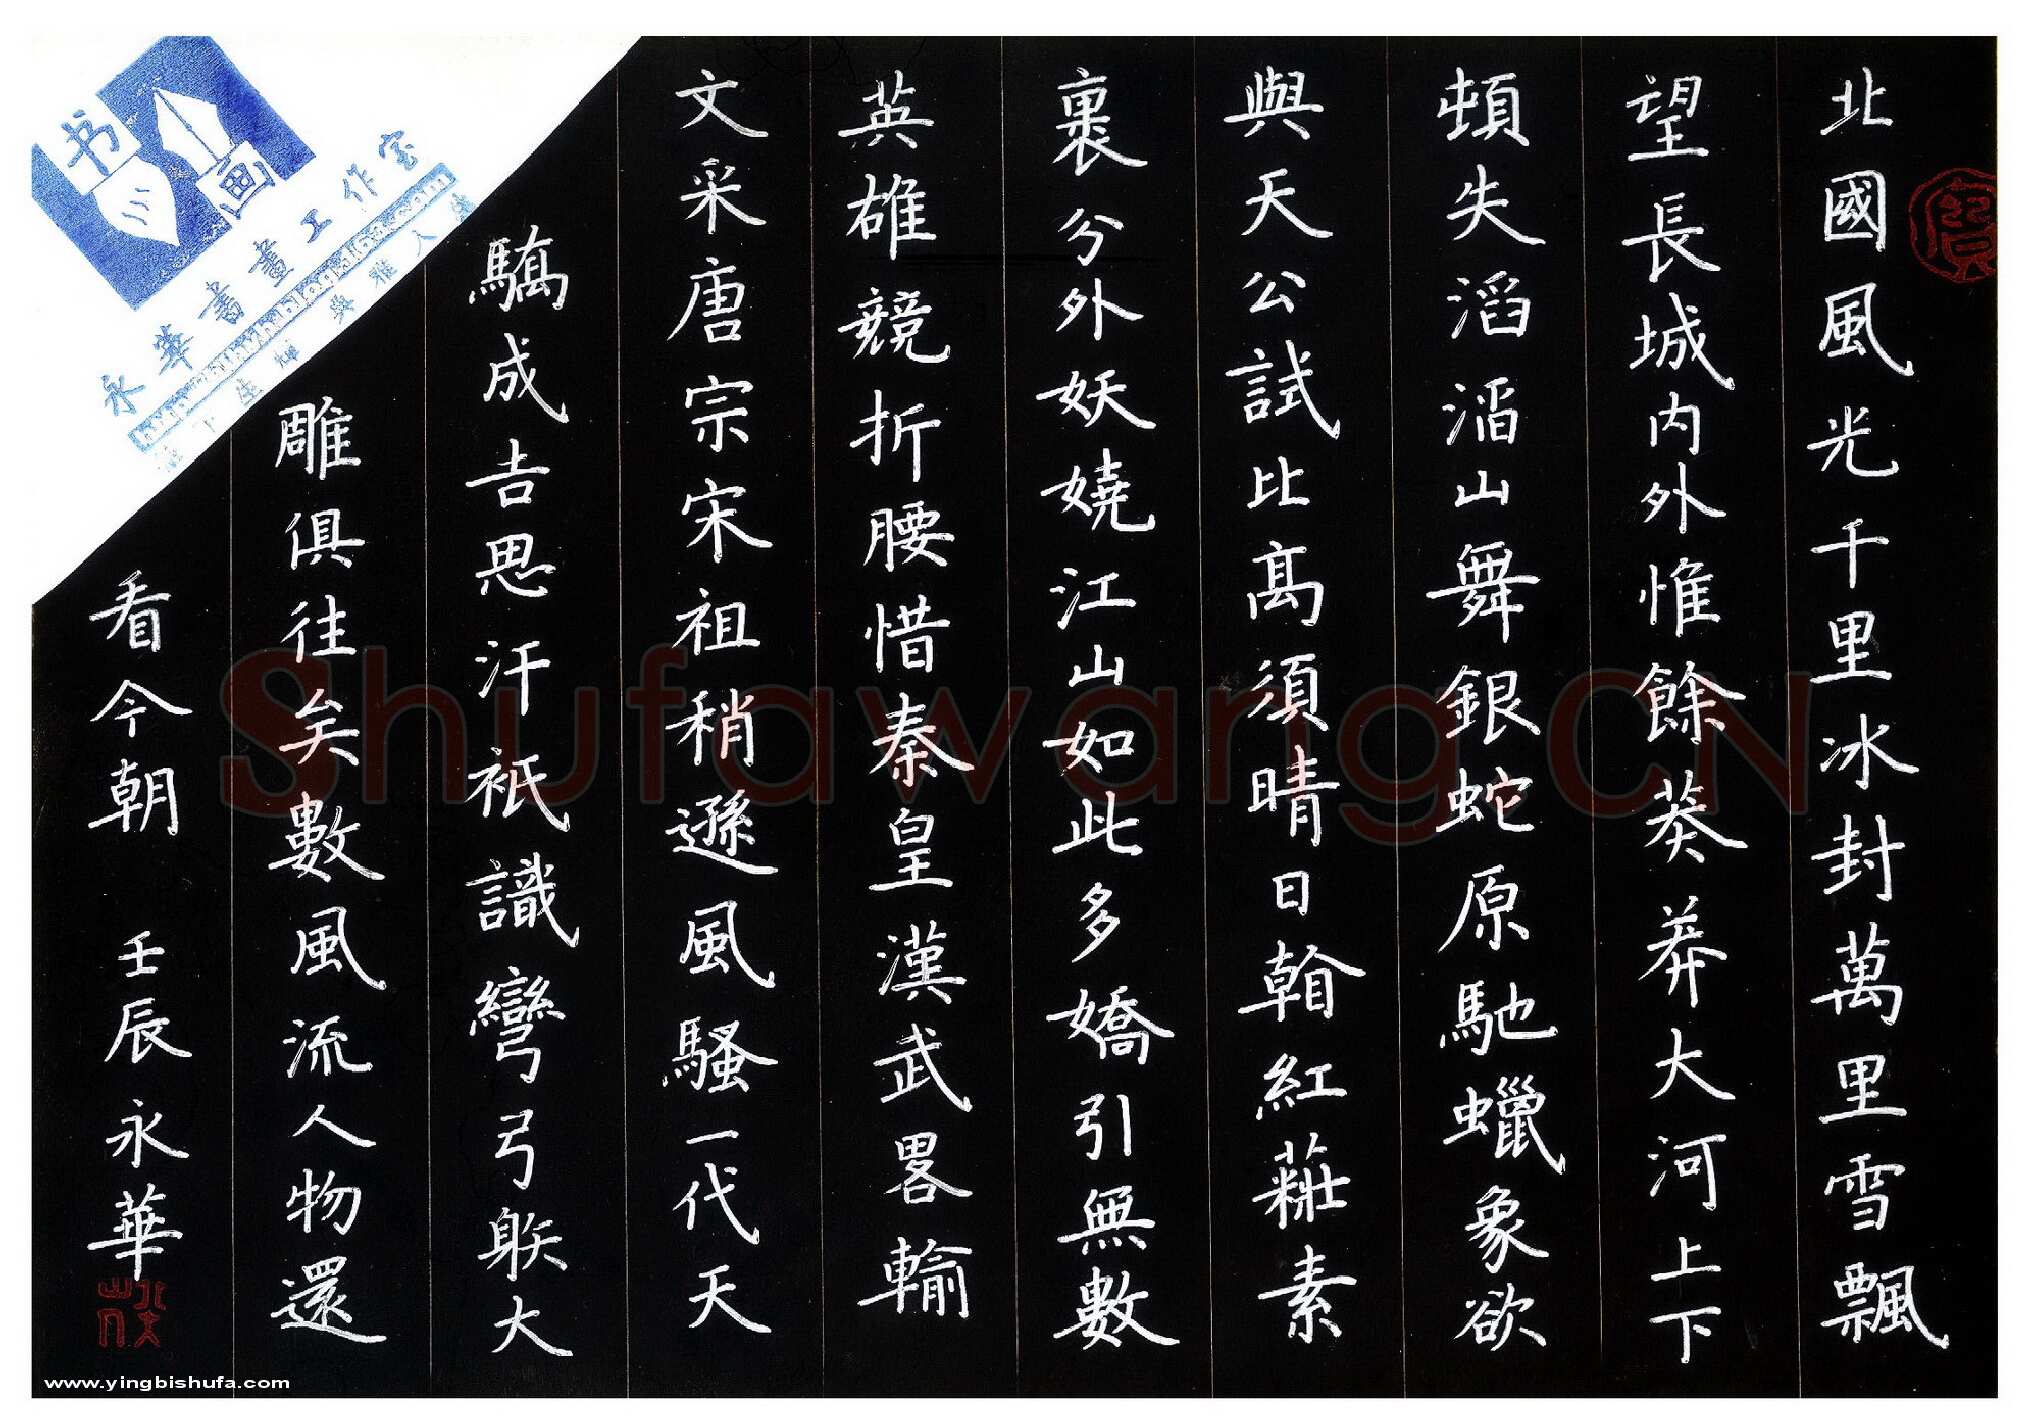 北國風光千里冰封萬里雪飄
望長城内外惟餘莽莽大河上下
頓失滔滔山舞銀蛇原馳蠟象欲
與天公試比高須晴日看紅粧素
裹分外妖嬈江山如此多嬌引無數
英雄競折腰惜秦皇漢武畧輸
文采唐宗宋祖稍遜風騷一代天
驕成吉思汗衹識彎弓躲大
雕俱往矣數風流人物還
看今朝 壬辰永華
书画
永華書畫工作室
Shufawang.CN
www.yingbishufa.com